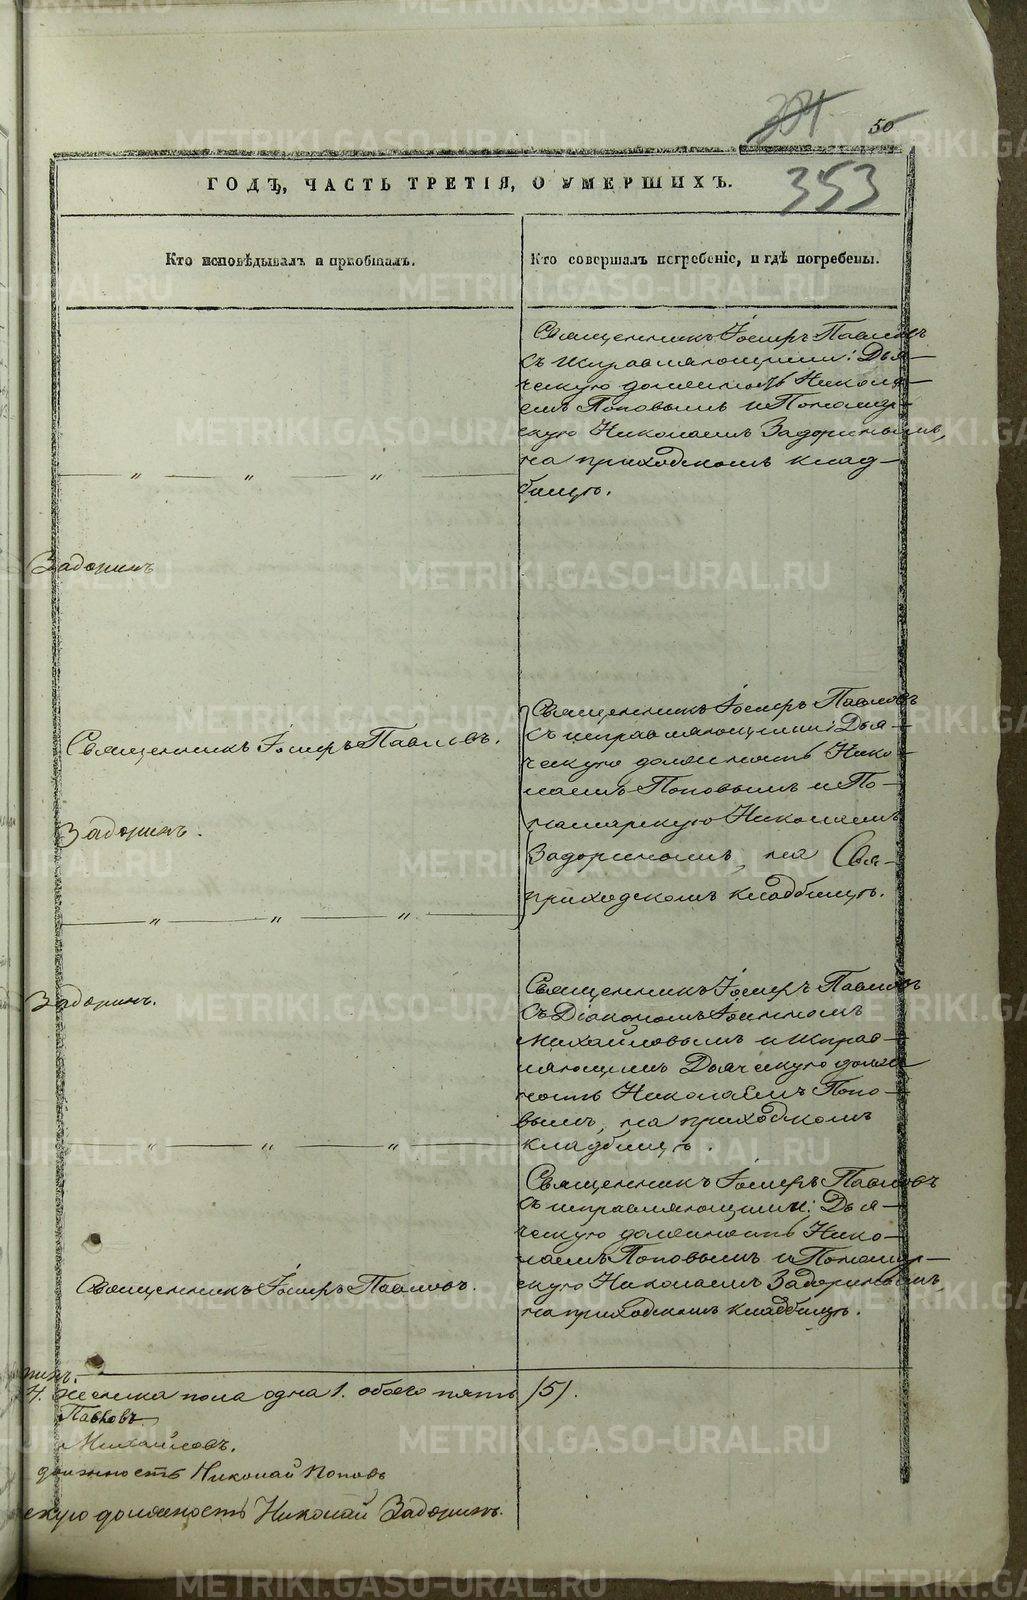 334
50
353
ГОДЪ, ЧАСТЬ ТРЕТІЯ, О УМЕРШИХЪ.
Кто исповѣдывалъ и пріобщалъ.
Кто совершалъ погребеніе, и гдѣ погребены.
Священникъ Іосифъ Павловъ
съ исправляющими: Дья-
ческую должность Никола-
емъ Поповымъ и Пономар-
скую Николаемъ Задоринымъ,
на приходскомъ клад-
бищѣ.
" " "
Задоринъ
Священникъ Іосифъ Павловъ.
Задоринъ.
" " "
Священникъ Іосифъ Павловъ
съ исправляющими: Дья-
ческую должность Нико-
лаемъ Поповымъ и По-
номарскую Николаемъ
Задоринымъ, на
приходскомъ кладбищѣ.
Задоринъ.
" " "
Священникъ Іосифъ Павловъ
съ Діакономъ Іоанномъ
Михайловымъ и исправ-
ляющимъ Дьяческую долж-
ность Николаемъ Попо-
вымъ, на приходскомъ
кладбищѣ.
Священникъ Іосифъ Павловъ.
Священникъ Іосифъ Павловъ
съ исправляющими: Дья-
ческую должность Нико-
лаемъ Поповымъ и Пономар-
скую Николаемъ Задоринымъ,
на приходскомъ кладбищѣ.
4. женска пола одна 1. обоего пять (5).
Павловъ
Михайловъ.
должность Николай Поповъ
скую должность Николай Задоринъ.
METRIKI.GASO-URAL.RU